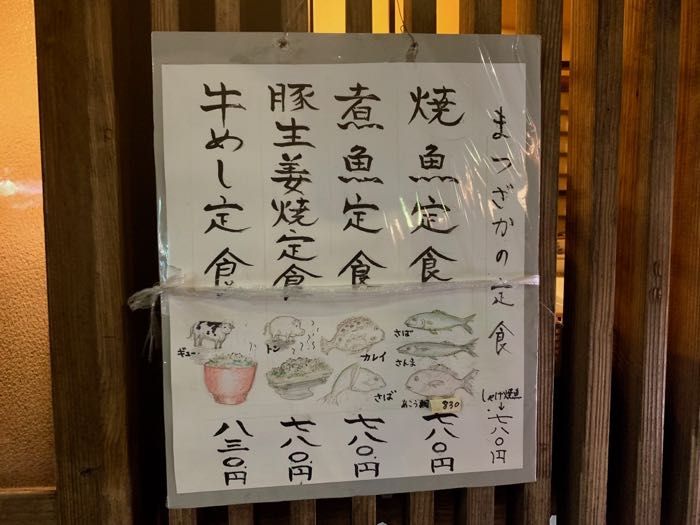 まつざかの定食
しゃけ焼魚
七八〇円
焼魚定食
さば
さんま
あこう鯛 830
七八〇円
煮魚定食
カレイ
さば
七八〇円
豚生姜焼定食
トン
七八〇円
牛めし定食
ギュー
八三〇円